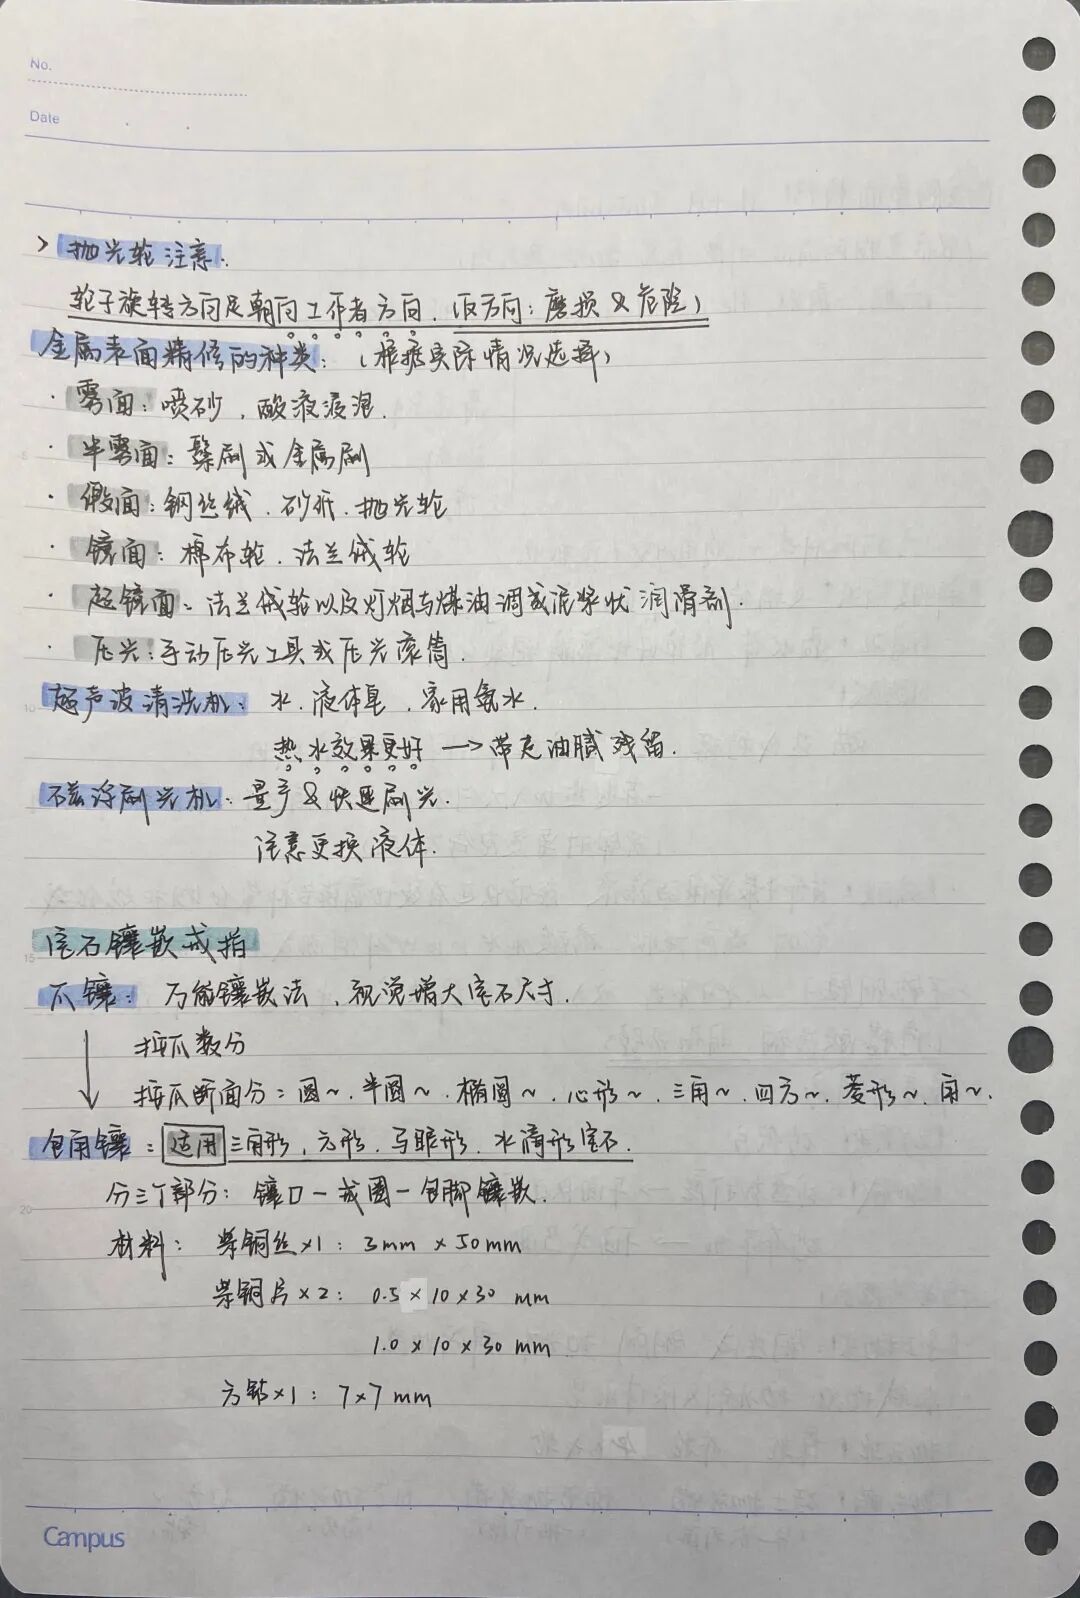 No.
Date
> 抛光轮注意:
轮子旋转方向是朝向工作者方向.(反方向:磨损&危险)
金属表面精修的种类:(根据实际情况选择)
· 雾面:喷砂,酸液浸泡.
· 半雾面:鬃刷或金属刷
· 缎面:钢丝绒.砂纸.抛光轮
· 镜面:棉布轮.法兰绒轮
· 超镜面:法兰绒轮以及灯烟与煤油调成泥浆状润滑剂.
· 压光:手动压光工具或压光滚筒.
超声波清洗机:水.液体皂.家用氨水.
热水效果更好 → 带走油腻残留.
磁浮刷光机:量产&快速刷光.
注意更换液体.
宝石镶嵌戒指
爪镶:万能镶嵌法,视觉增大宝石尺寸.
按爪数分
按爪断面分:圆~.半圆~.椭圆~.心形~.三角~.四方~.菱形~.角~.
包角镶:适用三角形,方形.马眼形.水滴形宝石.
分三个部分:镶口—戒圈—包脚镶嵌.
材料:紫铜丝×1:3mm×50mm
紫铜片×2:0.5×10×30 mm
1.0×10×30 mm
方钻×1:7×7mm
Campus
5
10
15
20